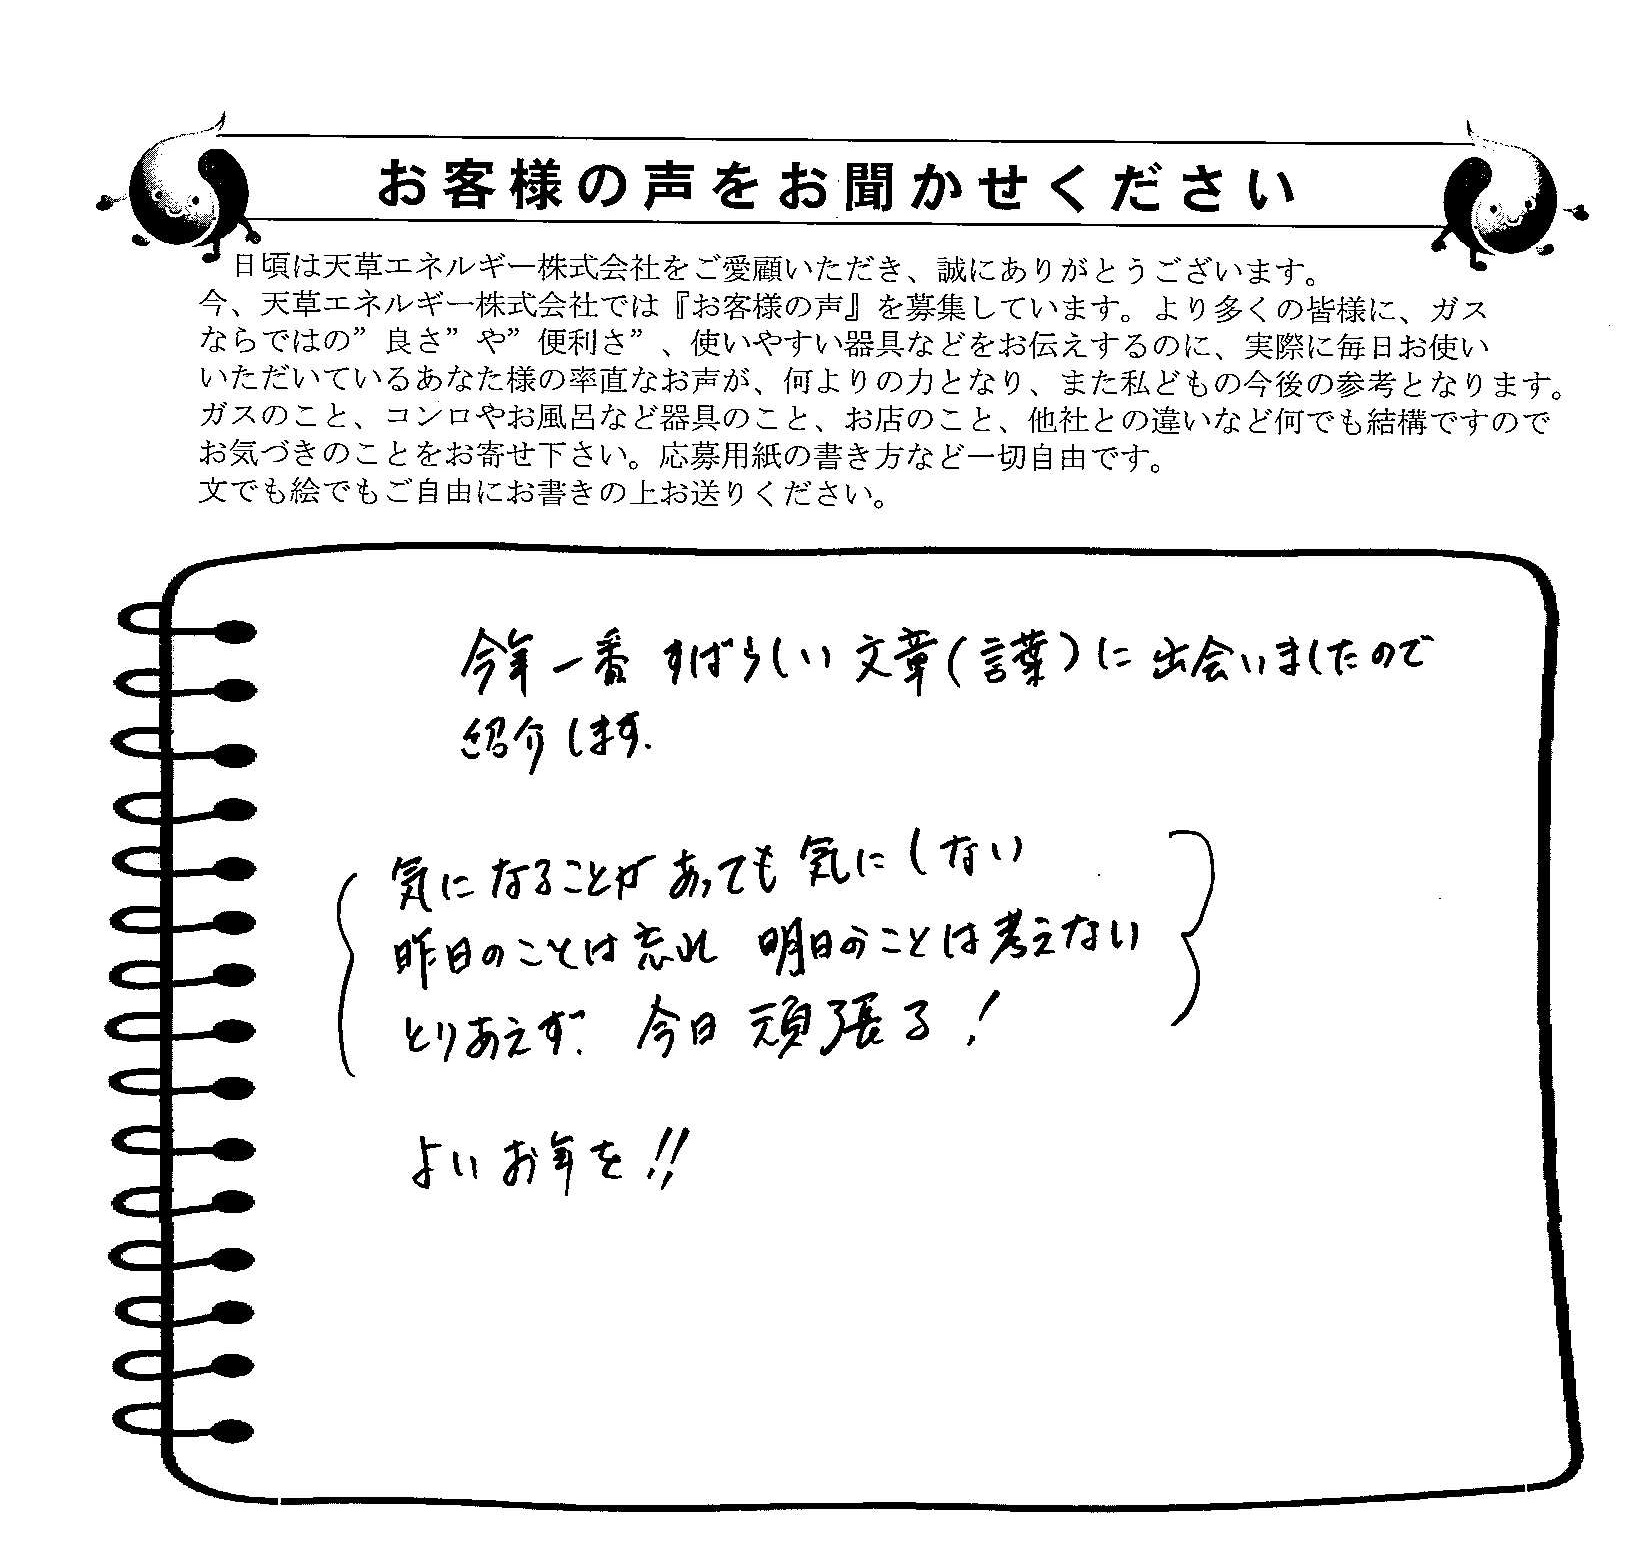 お客様の声をお聞かせください
日頃は天草エネルギー株式会社をご愛顧いただき、誠にありがとうございます。
今、天草エネルギー株式会社では『お客様の声』を募集しています。より多くの皆様に、ガス
ならではの”良さ”や”便利さ”、使いやすい器具などをお伝えするのに、実際に毎日お使い
いただいているあなた様の率直なお声が、何よりの力となり、また私どもの今後の参考となります。
ガスのこと、コンロやお風呂など器具のこと、お店のこと、他社との違いなど何でも結構ですので
お気づきのことをお寄せ下さい。応募用紙の書き方など一切自由です。
文でも絵でもご自由にお書きの上お送りください。
今年一番 すばらしい 文章(言葉)に 出会いましたので
紹介します.
気になることが あっても 気にしない
昨日のことは 忘れ 明日のことは 考えない
とりあえず. 今日 頑張る!
よい お年を!!